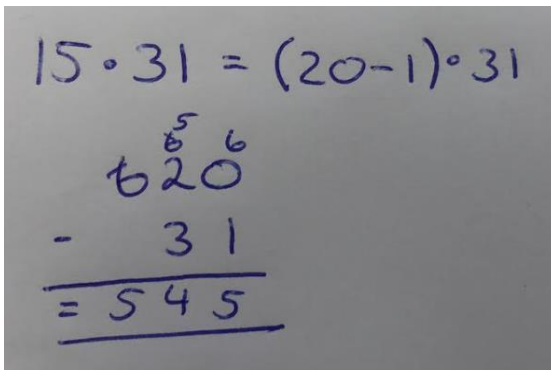 15·31 = (20-1)·31
5
6 6
620
- 31
= 545